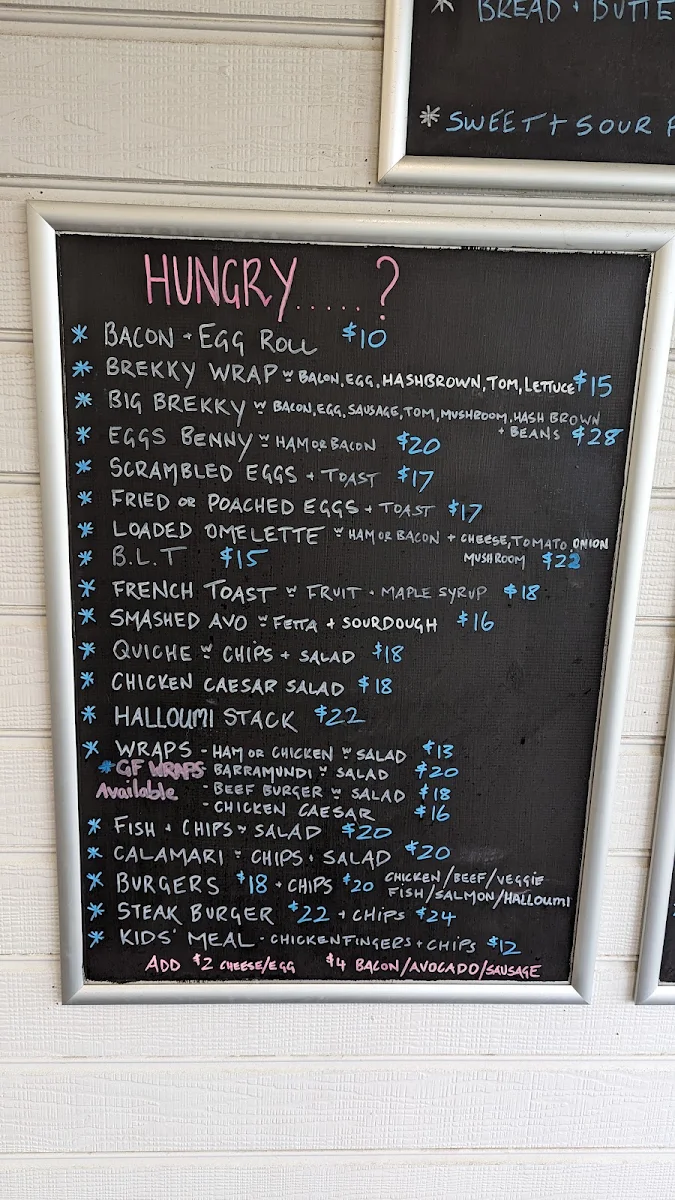 * BREAD + BUTTE
* SWEET + SOUR
HUNGRY.....?
* BACON + EGG ROLL $10
* BREKKY WRAP w BACON, EGG, HASHBROWN, TOM, LETTUCE $15
* BIG BREKKY w BACON, EGG, SAUSAGE, TOM, MUSHROOM, HASH BROWN
+ BEANS $28
* EGGS BENNY w HAM OR BACON $20
* SCRAMBLED EGGS + TOAST $17
* FRIED OR POACHED EGGS + TOAST $17
* LOADED OMELETTE w HAM OR BACON + CHEESE, TOMATO, ONION
MUSHROOM $22
* B.L.T $15
* FRENCH TOAST w FRUIT + MAPLE SYRUP $18
* SMASHED AVO w FETTA + SOURDOUGH $16
* QUICHE w CHIPS + SALAD $18
* CHICKEN CAESAR SALAD $18
* HALLOUMI STACK $22
* WRAPS - HAM OR CHICKEN w SALAD $13
* GF WRAPS Available
BARRAMUNDI w SALAD $20
- BEEF BURGER w SALAD $18
- CHICKEN CAESAR $16
* FISH + CHIPS w SALAD $20
* CALAMARI w CHIPS + SALAD $20
* BURGERS $18 + CHIPS $20 CHICKEN/BEEF/VEGGIE
FISH/SALMON/HALLOUMI
* STEAK BURGER $22 + CHIPS $24
* KIDS' MEAL - CHICKEN FINGERS + CHIPS $12
ADD $2 CHEESE/EGG $4 BACON/AVOCADO/SAUSAGE